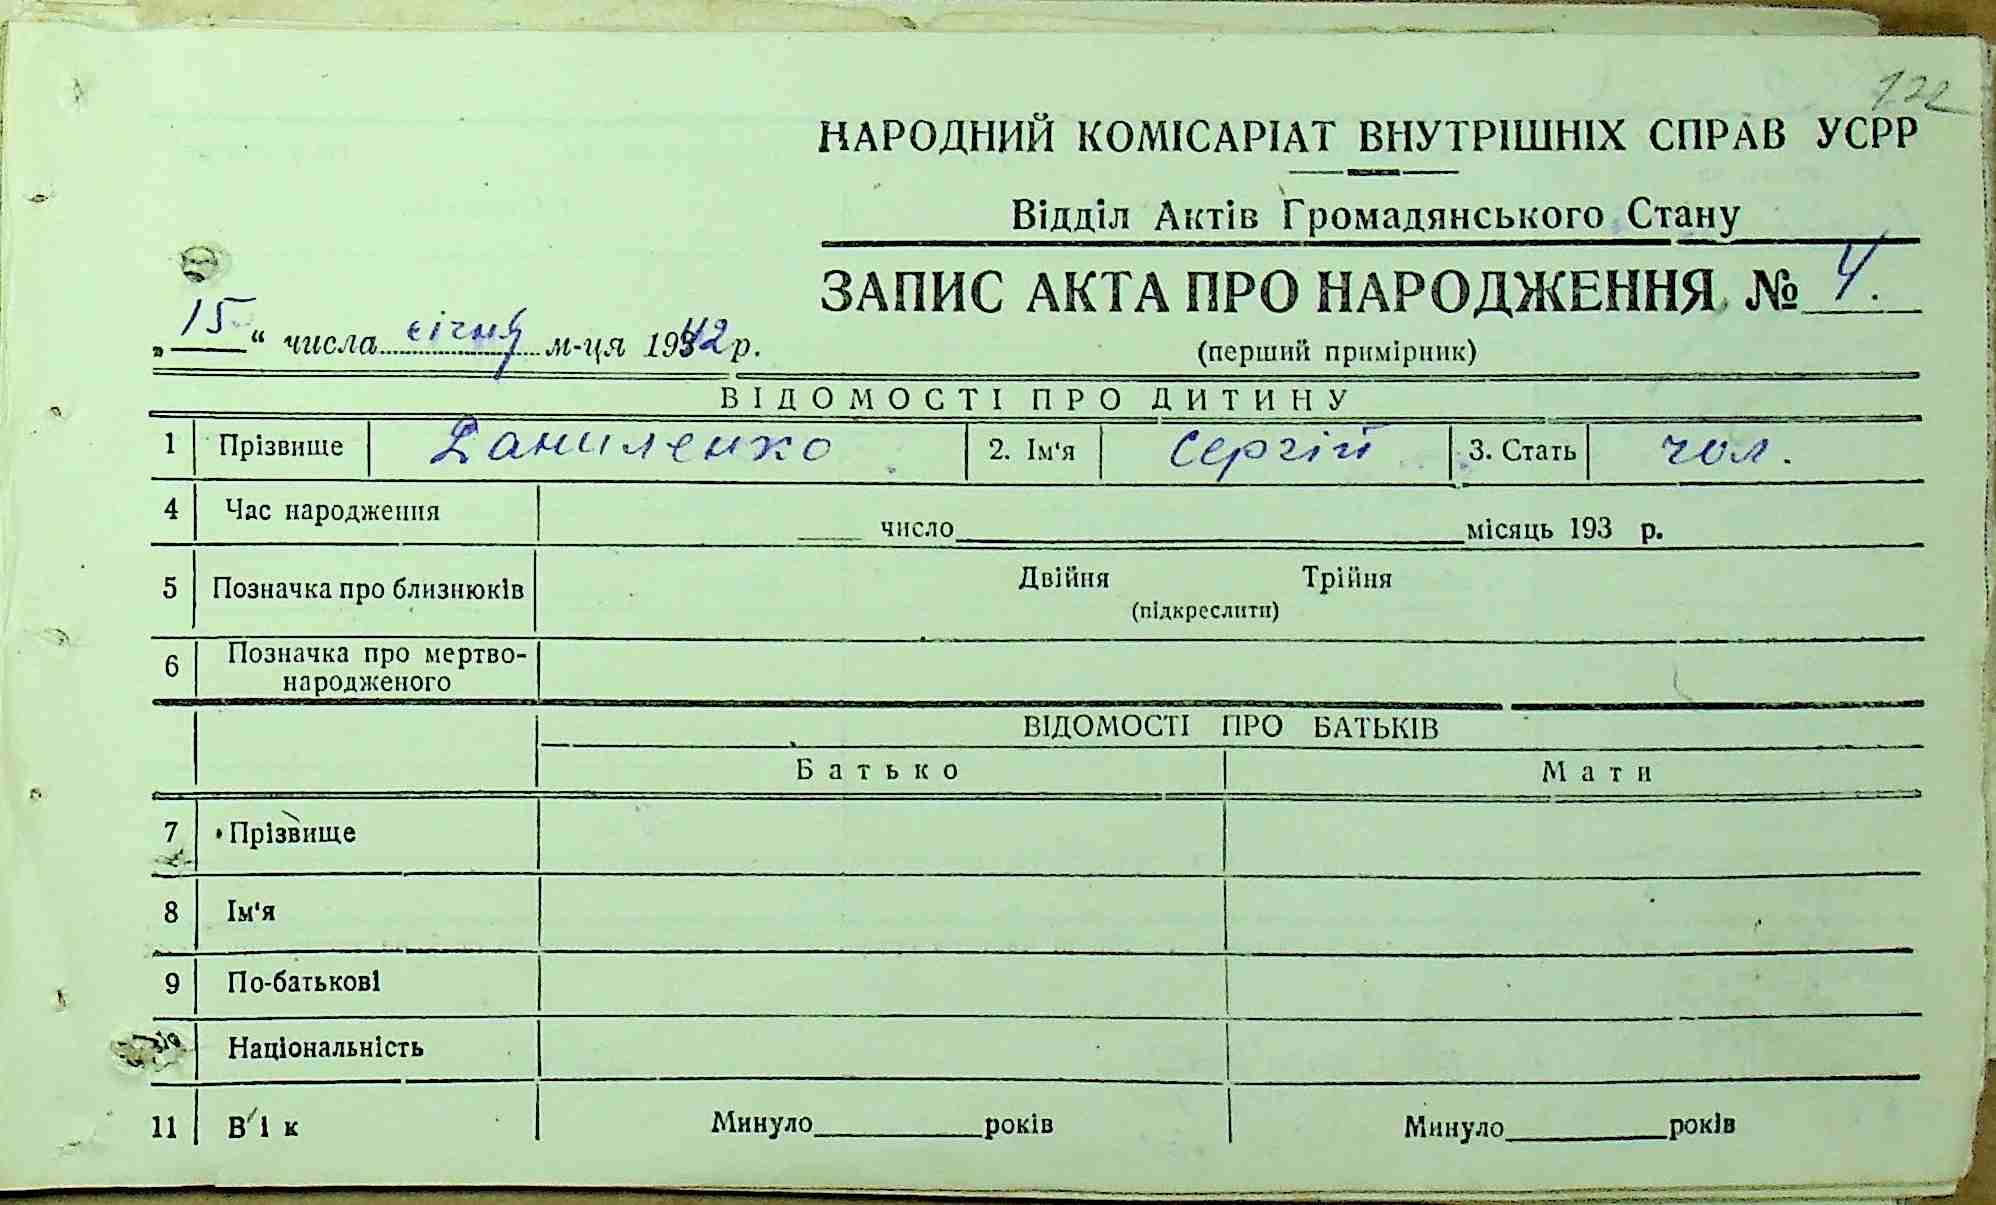 122
НАРОДНИЙ КОМІСАРІАТ ВНУТРІШНІХ СПРАВ УСРР
Відділ Актів Громадянського Стану
ЗАПИС АКТА ПРО НАРОДЖЕННЯ № 4.
„15“ числа січня м-ця 1942 р.
(перший примірник)
ВІДОМОСТІ ПРО ДИТИНУ
1 Прізвище Даниленко 2. Ім‘я Сергій 3. Стать чол.
4 Час народження ____ число ____ місяць 193 р.
5 Позначка про близнюків Двійня Трійня
(підкреслити)
6 Позначка про мертво-
народженого
ВІДОМОСТІ ПРО БАТЬКІВ
Батько Мати
7 Прізвище
8 Ім‘я
9 По-батькові
Національність
11 Вік Минуло ____ років Минуло ____ років